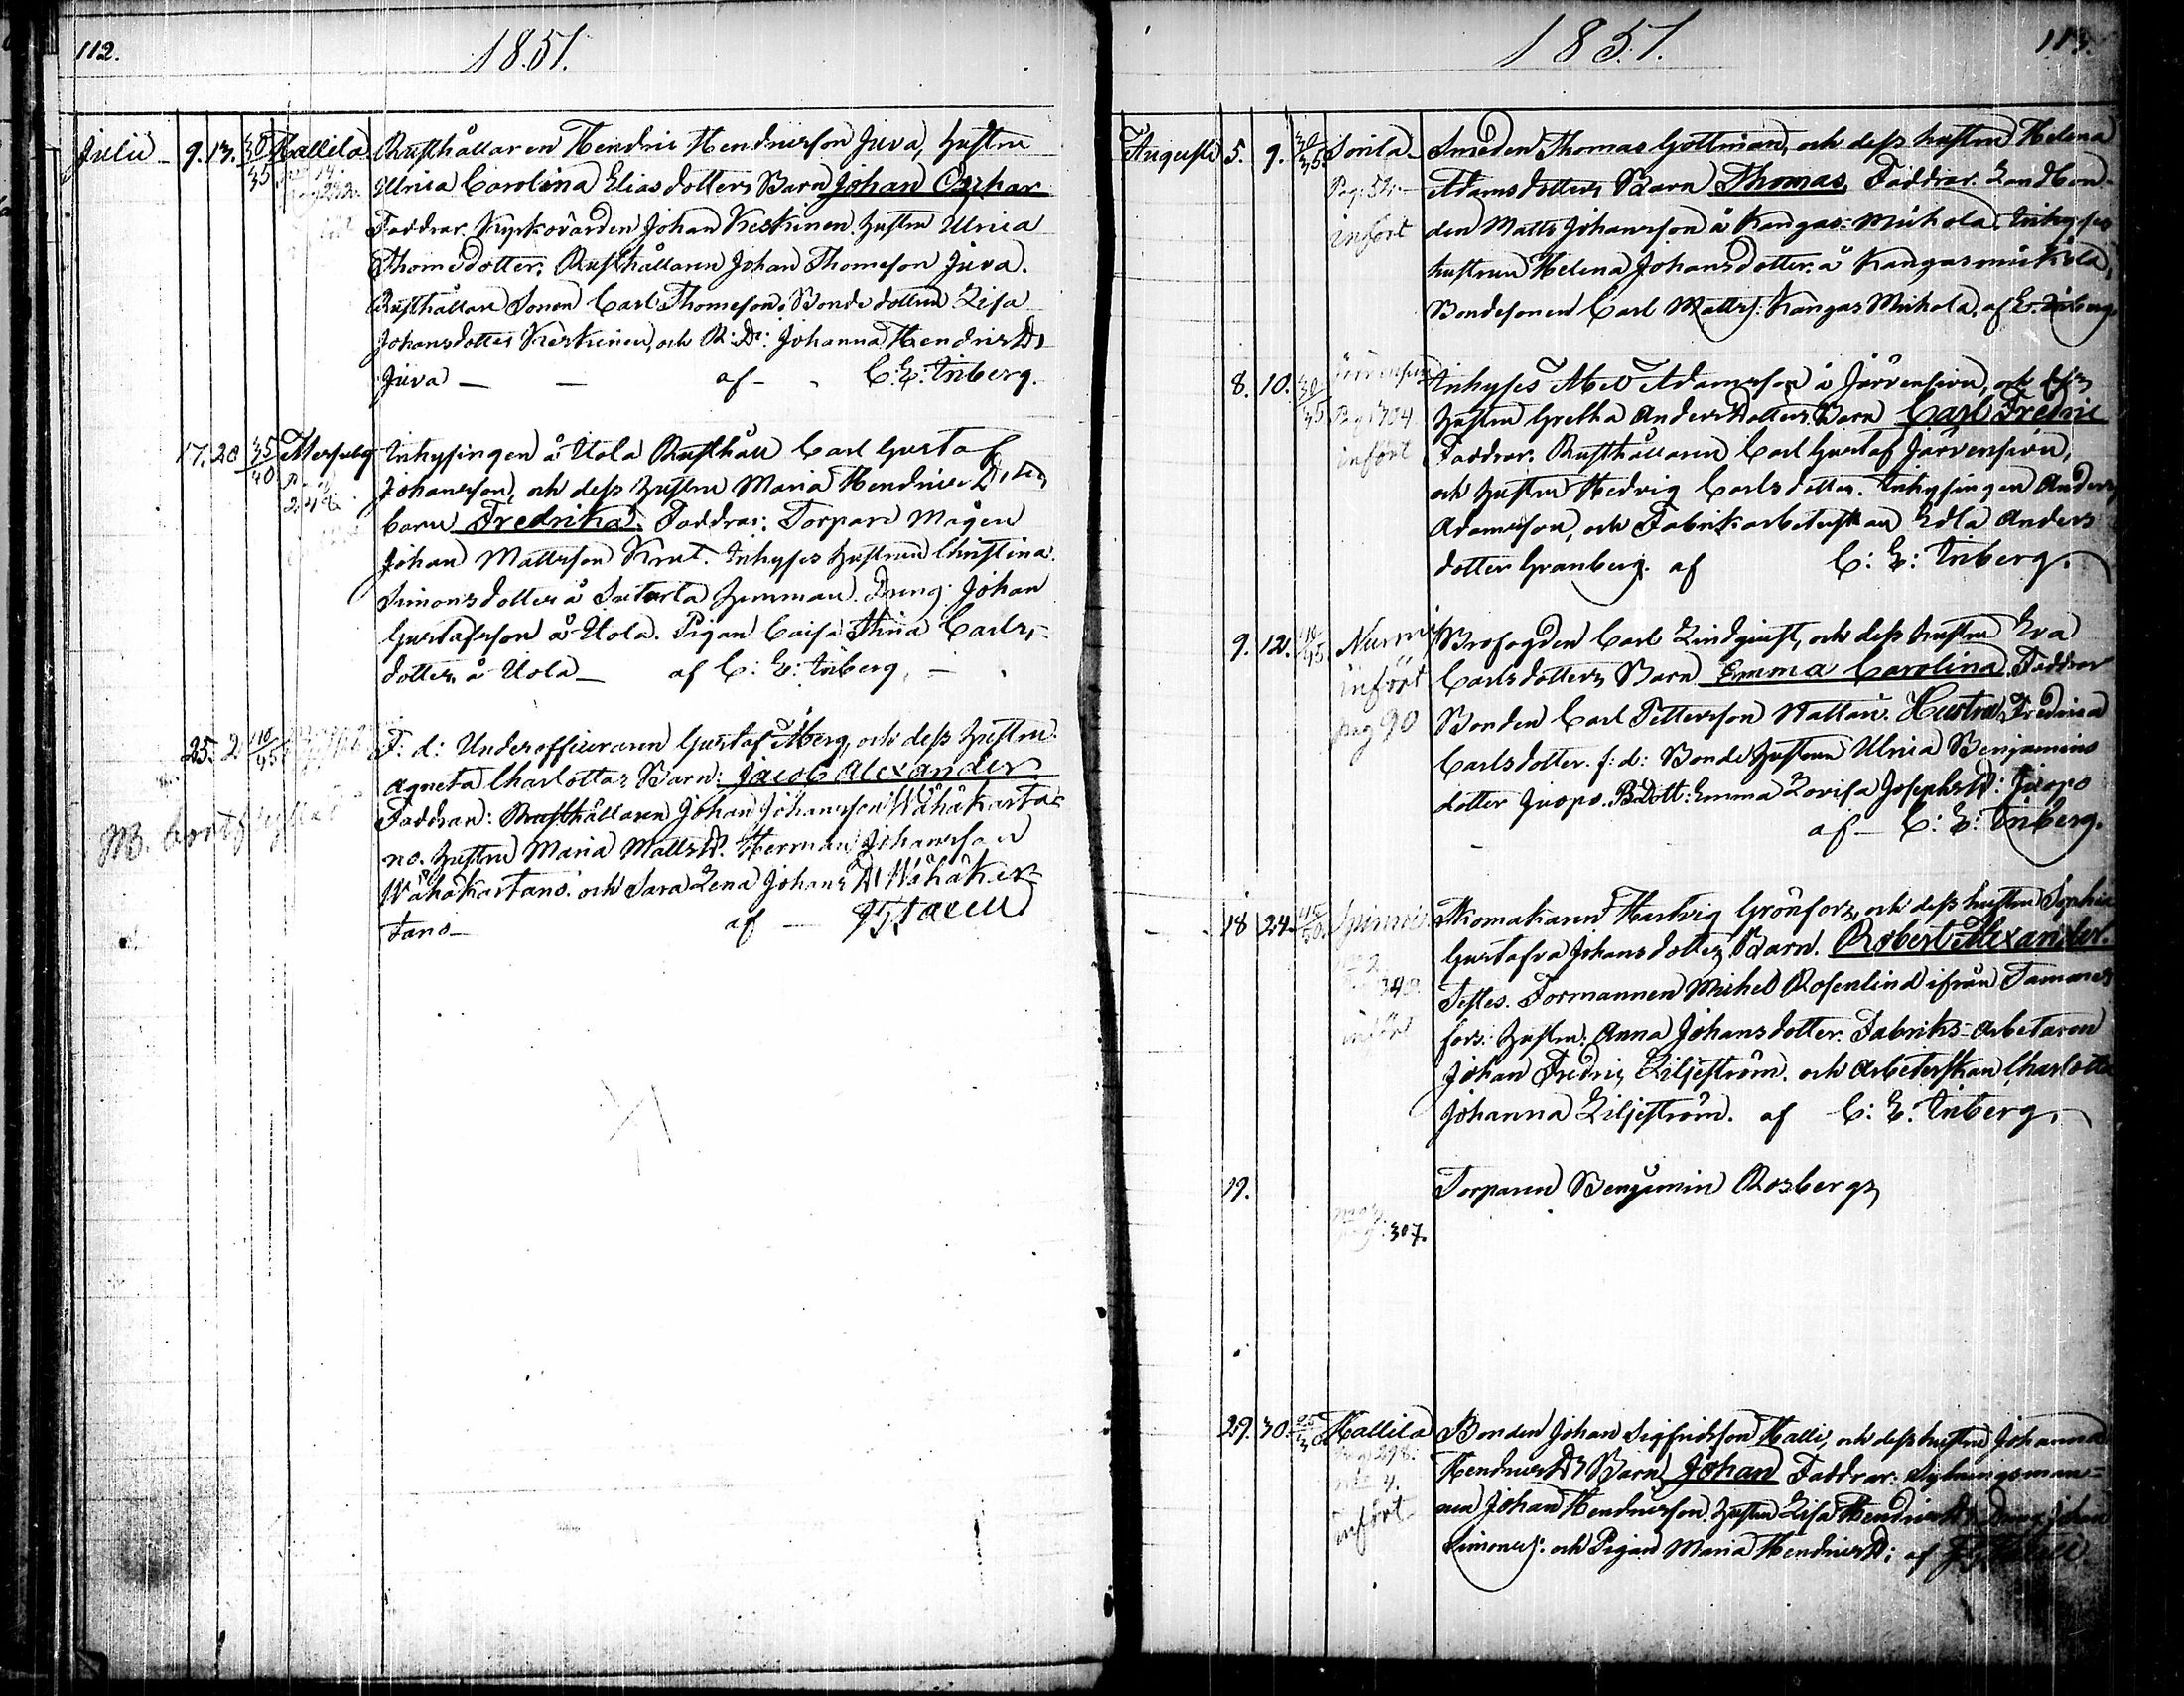 112.
1851.
Julii 9. 13. 30/35 Hallila Rusthållaren Hendric Hendricsson Juva, hustru
Ulrica Carolina Eliasdotters Barn Johan Oschar
Faddrar. Kyrkovärden Johan Keskinen. hustru Ulrica
Thomedotter, Rusthållaren Johan Thomeson Juva.
Rusthållare Sonen Carl Thomeson, Bonde dottren Lisa
Johansdotter Keskinen, och R: Dr: Johanna Hendricsdr
Juva — — af — C: E: Inberg.
17. 20 35/40 Inhysingen å Uola Rusthåll Carl Gustaf
Johansson, och dess hustru Maria Hendrics
barn Fredrika. Faddrar: Torpare Mågen
Johan Mattsson Krut. Inhyses hustrun Christina
Simonsdotter å Sutarla hemman. Dreng Johan
Gustafsson å Uola. Pigan Caisa Stina Carls-
dotter å Uola — af C: E: Inberg, —
25. 2 40/45 F: d: Underofficeraren Gustaf Åberg, och dess hustru
Agneta Charlottas Barn: Jacob Alexander
Faddrar: Rusthållaren Johan Johansson Wähäkarta-
no. hustru Maria Mattsdr. Herman Johansson
Wähäkartano. och Sara Lena Johans Dr Wähäkar-
tano — af —
1851.
113.
Augusti 5. 9. 30/35 Sorila Smeden Thomas Gottman, och dess hustru Helena
Pag: 52 Adamsdotters Barn Thomas, Faddrar. Landbon-
infört den Matts Johansson å Kangas-Mickola. Inhyses
hustrun Helena Johansdotter å Kangasmickola,
Bondesonen Carl Mattss: Kangas Mickola. af E. Inberg.
8. 10. 30/35 Järvensivu Inhyses Abel Adamsson å Järvensivu, och dess
Pag 304 hustru Gretha Andersdotters Barn Carl Fredric
infört Faddrar: Rusthållaren Carl Gustaf Järvensivu,
och hustru Hedvig Carlsdotter. Inhysingen Anders
Adamsson, och Fabriksarbeterskan Edla Anders
dotter Granberg. af C: E: Inberg.
9. 12. 40/45 Nurmi Brofogden Carl Lindqvist, och dess hustru Eva
infört Carlsdotters Barn Emma Carolina. Faddrar
pag 90 Bonden Carl Pettersson Nattari. Hustru Fredrica
Carlsdotter. f: d: Bonde hustrun Ulrica Benjamins
dotter Juopo. B.dott: Emma Lovisa Josephsdr. Juopo
af — C: E: Inberg.
18 24 45/50 Hartvig Grönfors, och dess hustru Sophia
Gustafva Johansdotters Barn. Robert Alexander.
340. Testes. Formannen Michel Rosenlind ifrån Tammer
infört fors. hustru: Anna Johansdotter. Fabriks-Arbetaren
Johan Fredric Liljeström. och Arbeterskan Charlotta
Johanna Liljeström. af C: E: Inberg.
19. Torparen Benjamin Rosbergs
307.
29. 30. 25/30 Hallila Bonden Johan Sigfridsson Halli, och dess hustru Johanna
Pag: 298. Hendricsdrs Barn Johan Faddrar:
infört Johan Hendricsson. hustru Lisa Hendricsdr, Dreng Johan
Simonss: och Pigan Maria Hendricsdr; af